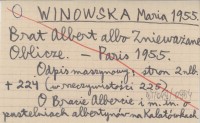 WINOWSKA Maria 1955.
Brat Albert albo Znieważone
Oblicze. – Paris 1955.
Odpis maszynowy, stron 2 nlb.
+ 224 (w rzeczywistości 225)
O Bracie Albercie i m. in. o
pustelniach albertynów na Kalatówkach